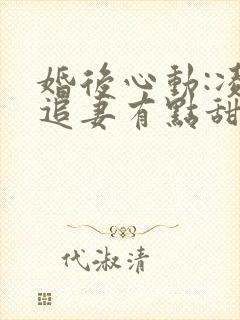 婚後心動:凌
追妻有點甜
代淑清